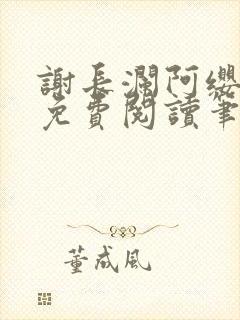 謝長瀾阿纓
免費閱讀筆
董成風